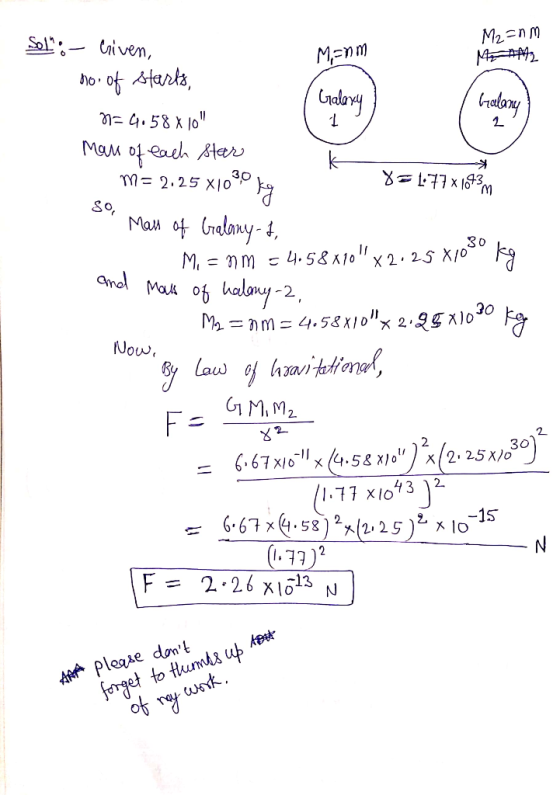 Solⁿ:— Given,
no. of starts,
n = 4.58 × 10¹¹
Mass of each star
m = 2.25 × 10³⁰ kg
M₁ = nm
Galaxy
1
M₂ = nm
Galaxy
2
r = 1.77 × 10⁴³ m
So,
Mass of Galaxy-1,
M₁ = nm = 4.58 × 10¹¹ × 2.25 × 10³⁰ kg
and Mass of Galaxy-2,
M₂ = nm = 4.58 × 10¹¹ × 2.25 × 10³⁰ kg
Now,
By Law of Gravitational,
F = G M₁ M₂ / r²
= 6.67 × 10⁻¹¹ × (4.58 × 10¹¹)² × (2.25 × 10³⁰)² / (1.77 × 10⁴³)²
= 6.67 × (4.58)² × (2.25)² × 10⁻¹⁵ / (1.77)² N
F = 2.26 × 10⁻¹³ N
please don't
forget to thumbs up
of my work.